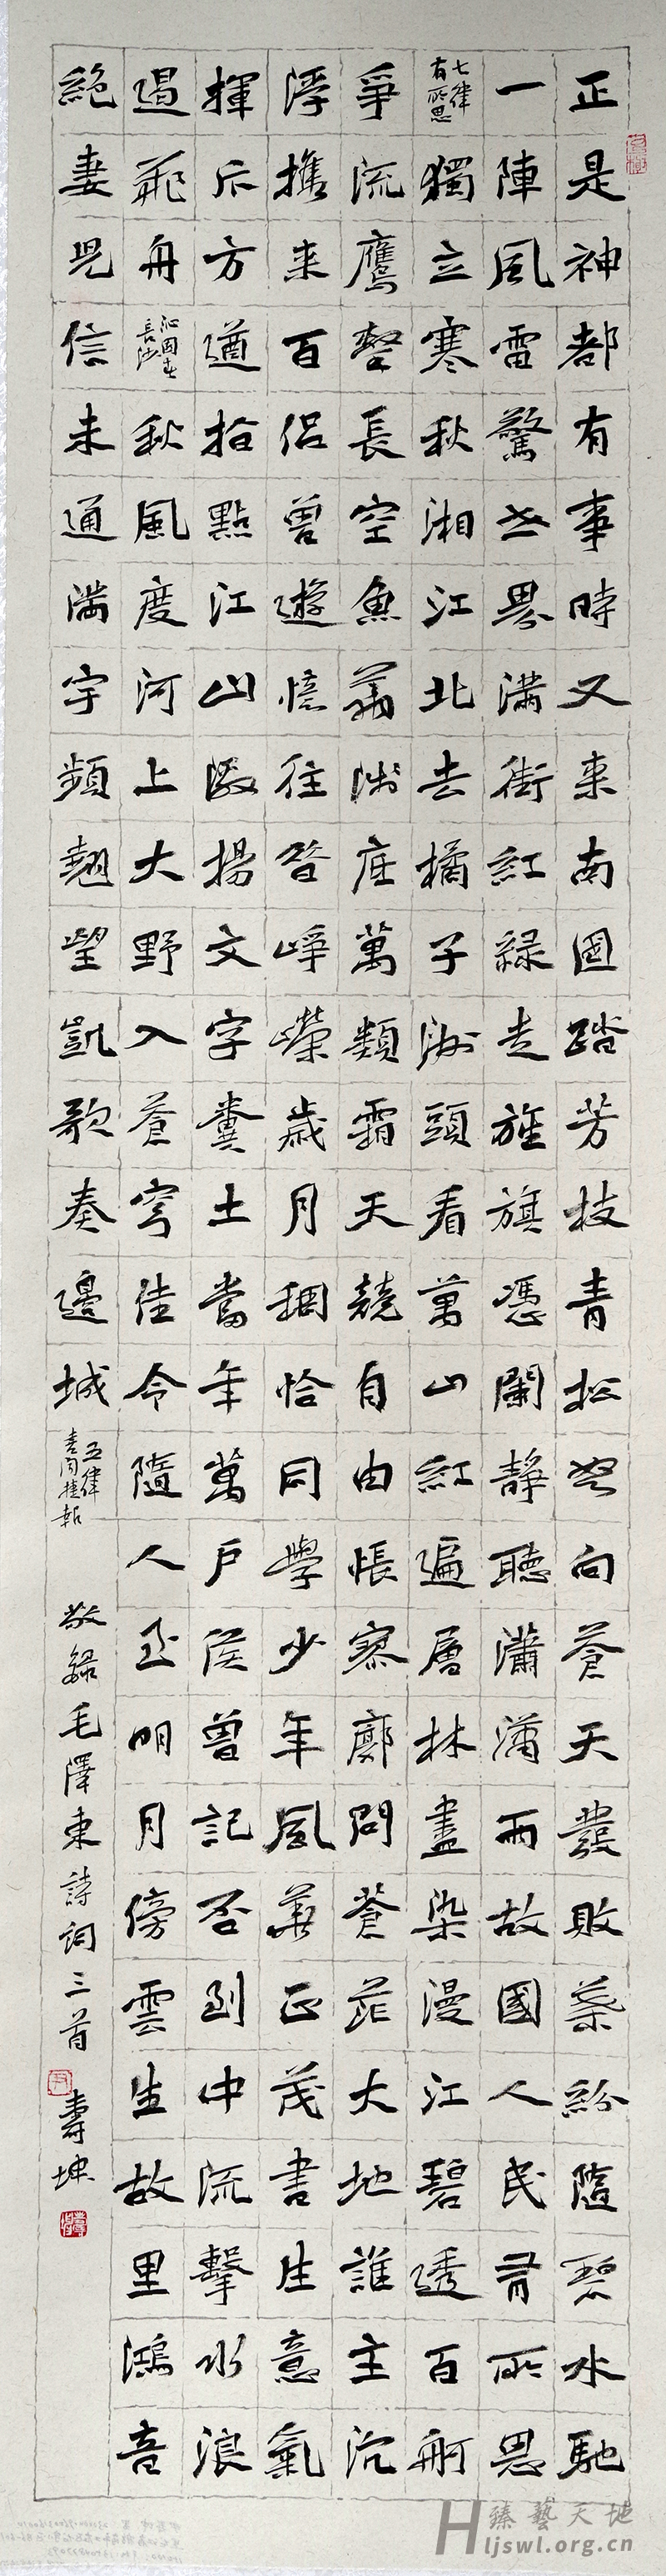 正是神都有事時又来南國踏芳枝青松怒向蒼天發敗葉紛隨碧水馳
一陣風雷驚世界滿街紅緑走旌旗憑闌靜聽瀟瀟雨故國人民有所思
七律有所思獨立寒秋湘江北去橘子洲頭看萬山紅遍層林盡染漫江碧透百舸
爭流鷹擊長空魚翔淺底萬類霜天競自由悵寥廓問蒼茫大地誰主沉
浮攜来百侣曾遊憶往昔崢嶸歲月稠恰同學少年風華正茂書生意氣
揮斥方遒指點江山激揚文字糞土當年萬戶侯曾記否到中流擊水浪
遏飛舟沁園春長沙秋風度河上大野入蒼穹佳令隨人至明月傍雲生故里鴻音
絶妻兒信未通滿宇頻翹望凱歌奏邊城五律喜聞捷報
敬録毛澤東詩詞三首壽坤
臻藝天地
Hljswl.org.cn